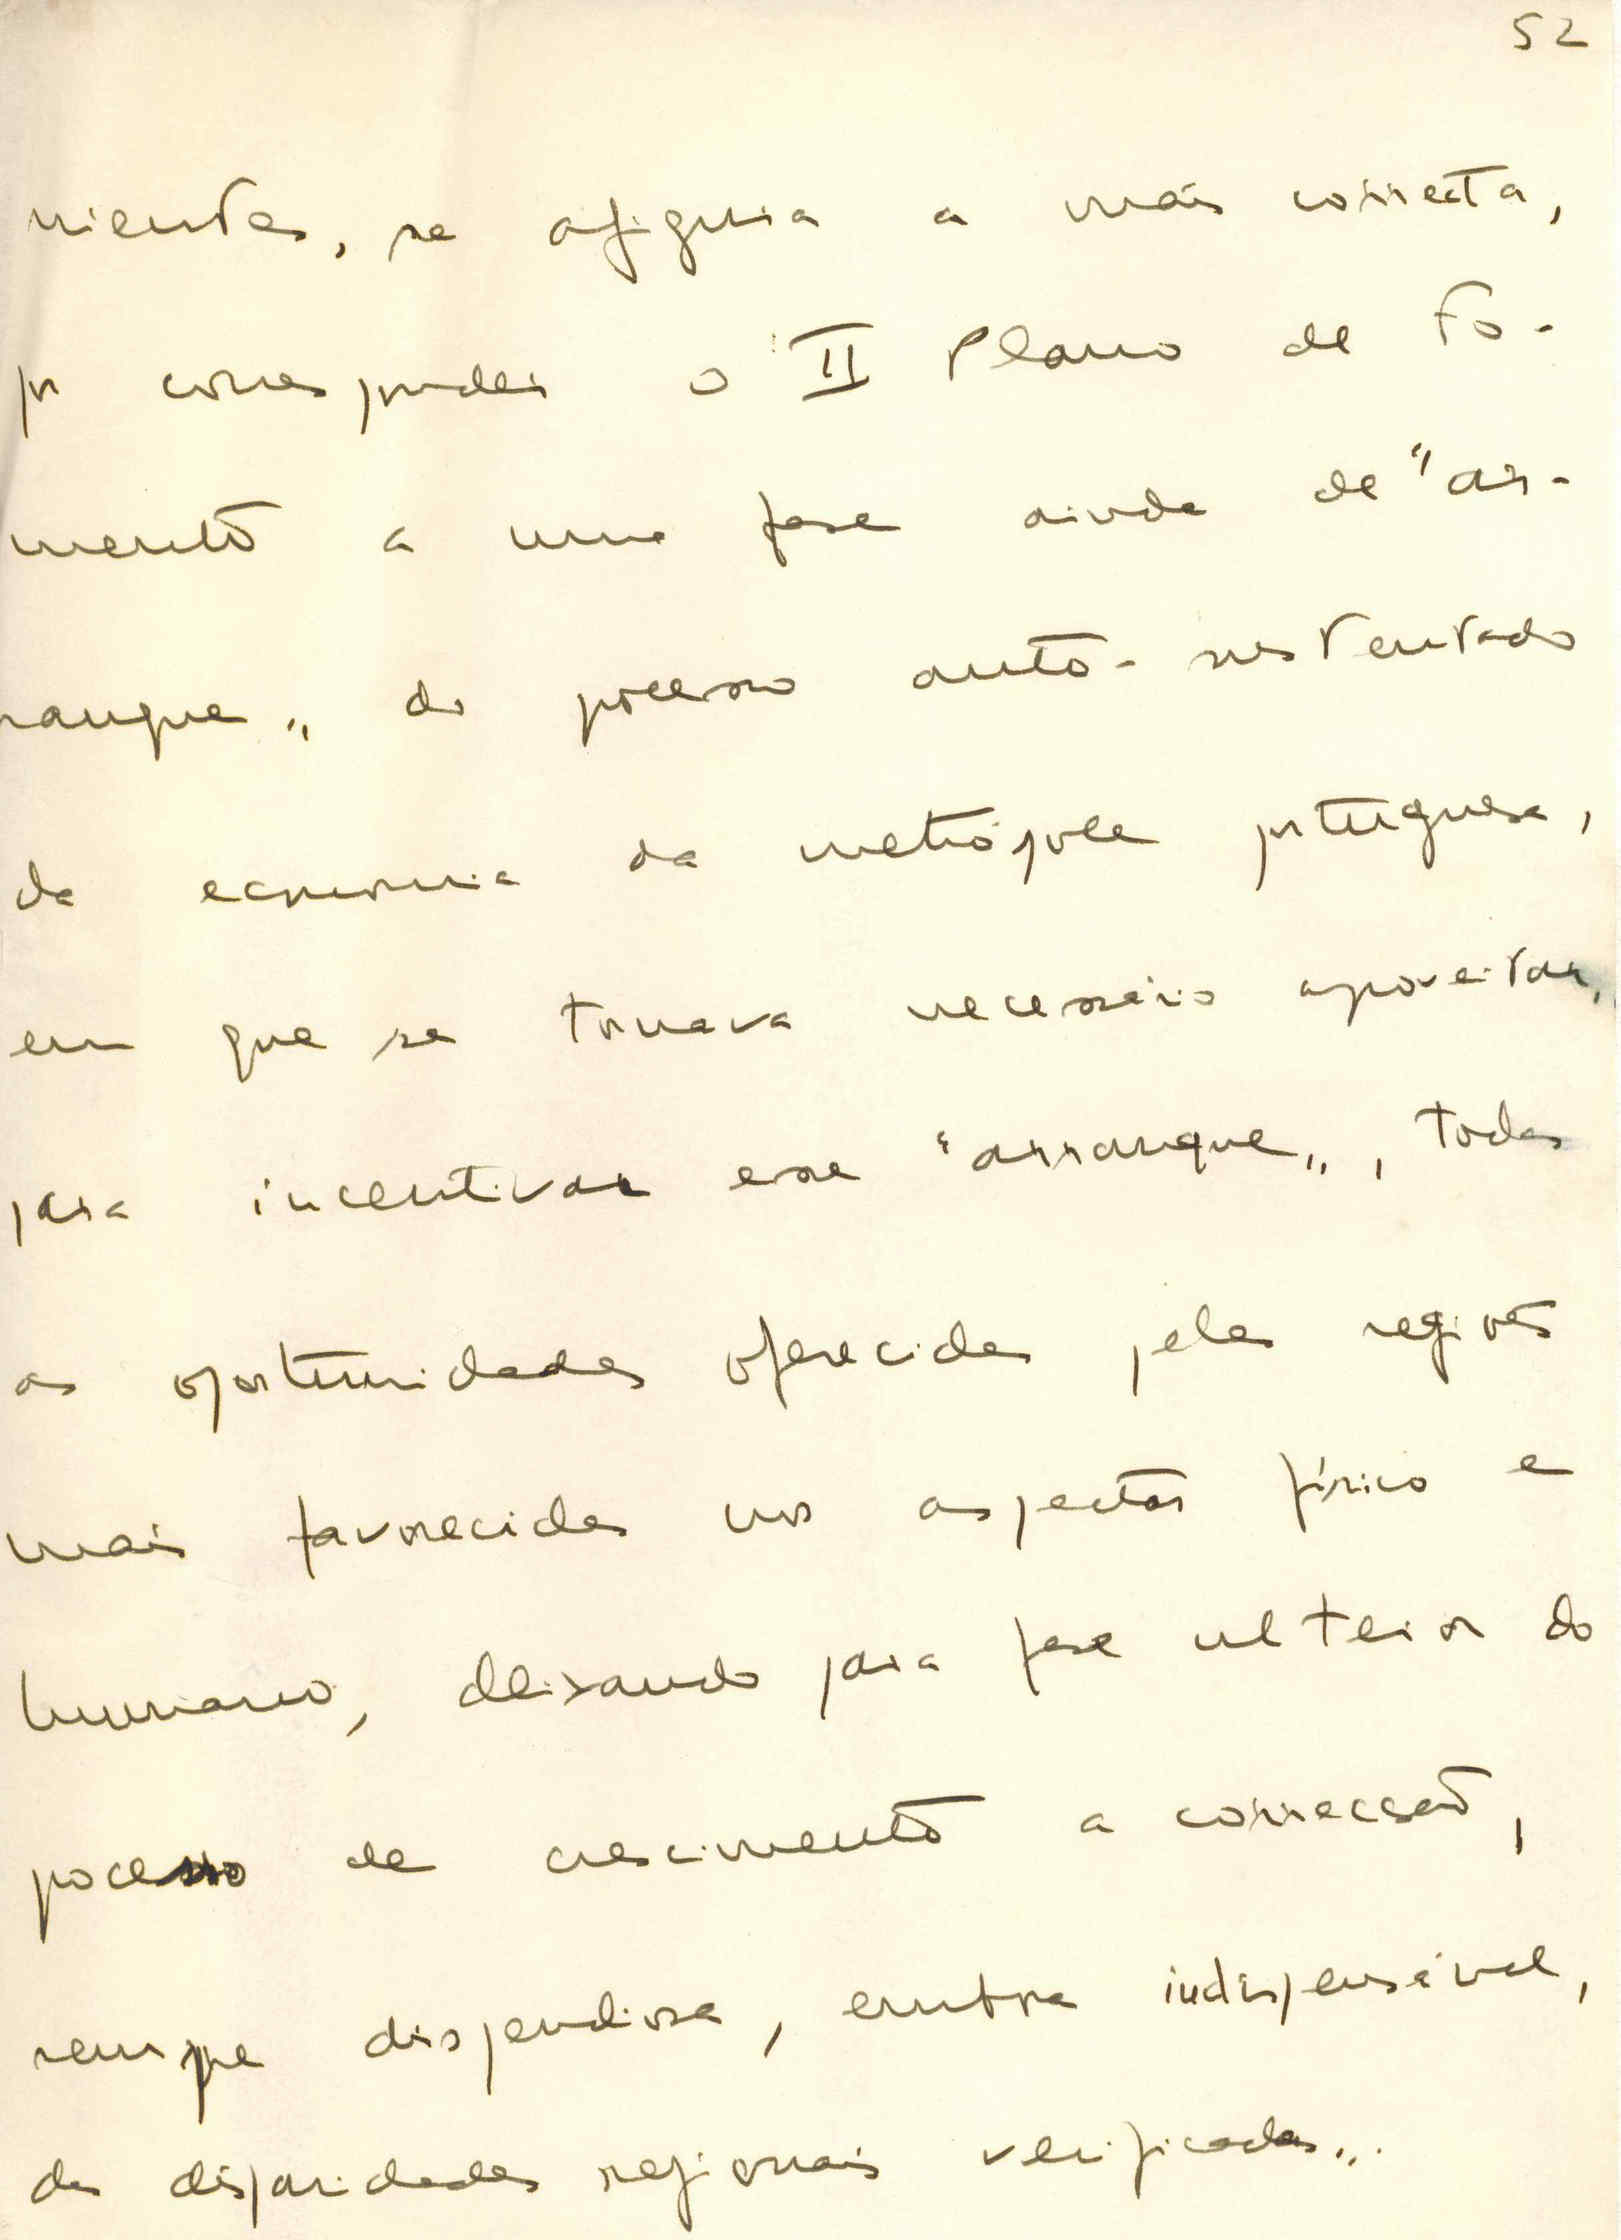 52
nientes, se afigura a mais correcta,
por corresponder o II Plano de Fo-
mento a uma fase ainda de "ar-
ranque" do processo auto-sustentado
da economia da metrópole portuguesa,
em que se tornava necessário aproveitar,
para incentivar esse "arranque", todas
as oportunidades oferecidas pelas regiões
mais favorecidas nos aspectos físico e
humano, deixando para fase ulterior do
processo de crescimento a correcção,
sempre dispendiosa, embora indispensável,
das disparidades regionais verificadas".